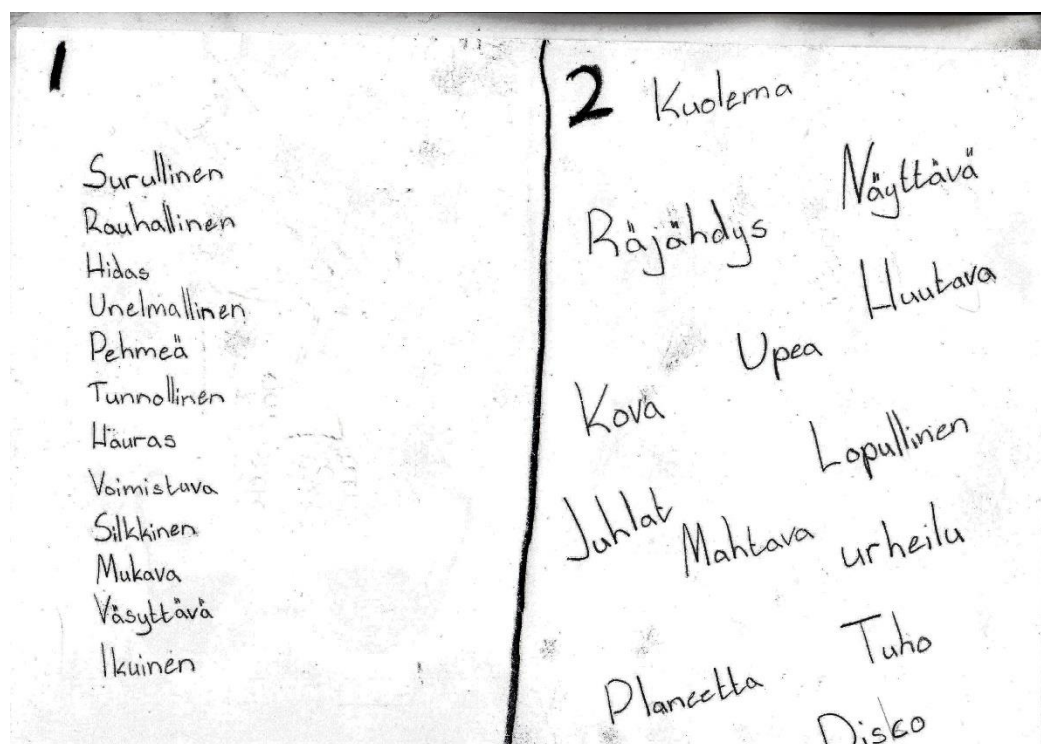 1
Surullinen
Rauhallinen
Hidas
Unelmallinen
Pehmeä
Tunnollinen
Hauras
Voimistuva
Silkkinen
Mukava
Väsyttävä
Ikuinen
2 Kuolema
Näyttävä
Räjähdys
Huutava
Upea
Kova
Lopullinen
Juhlat Mahtava urheilu
Tuho
Planeetta
Disko